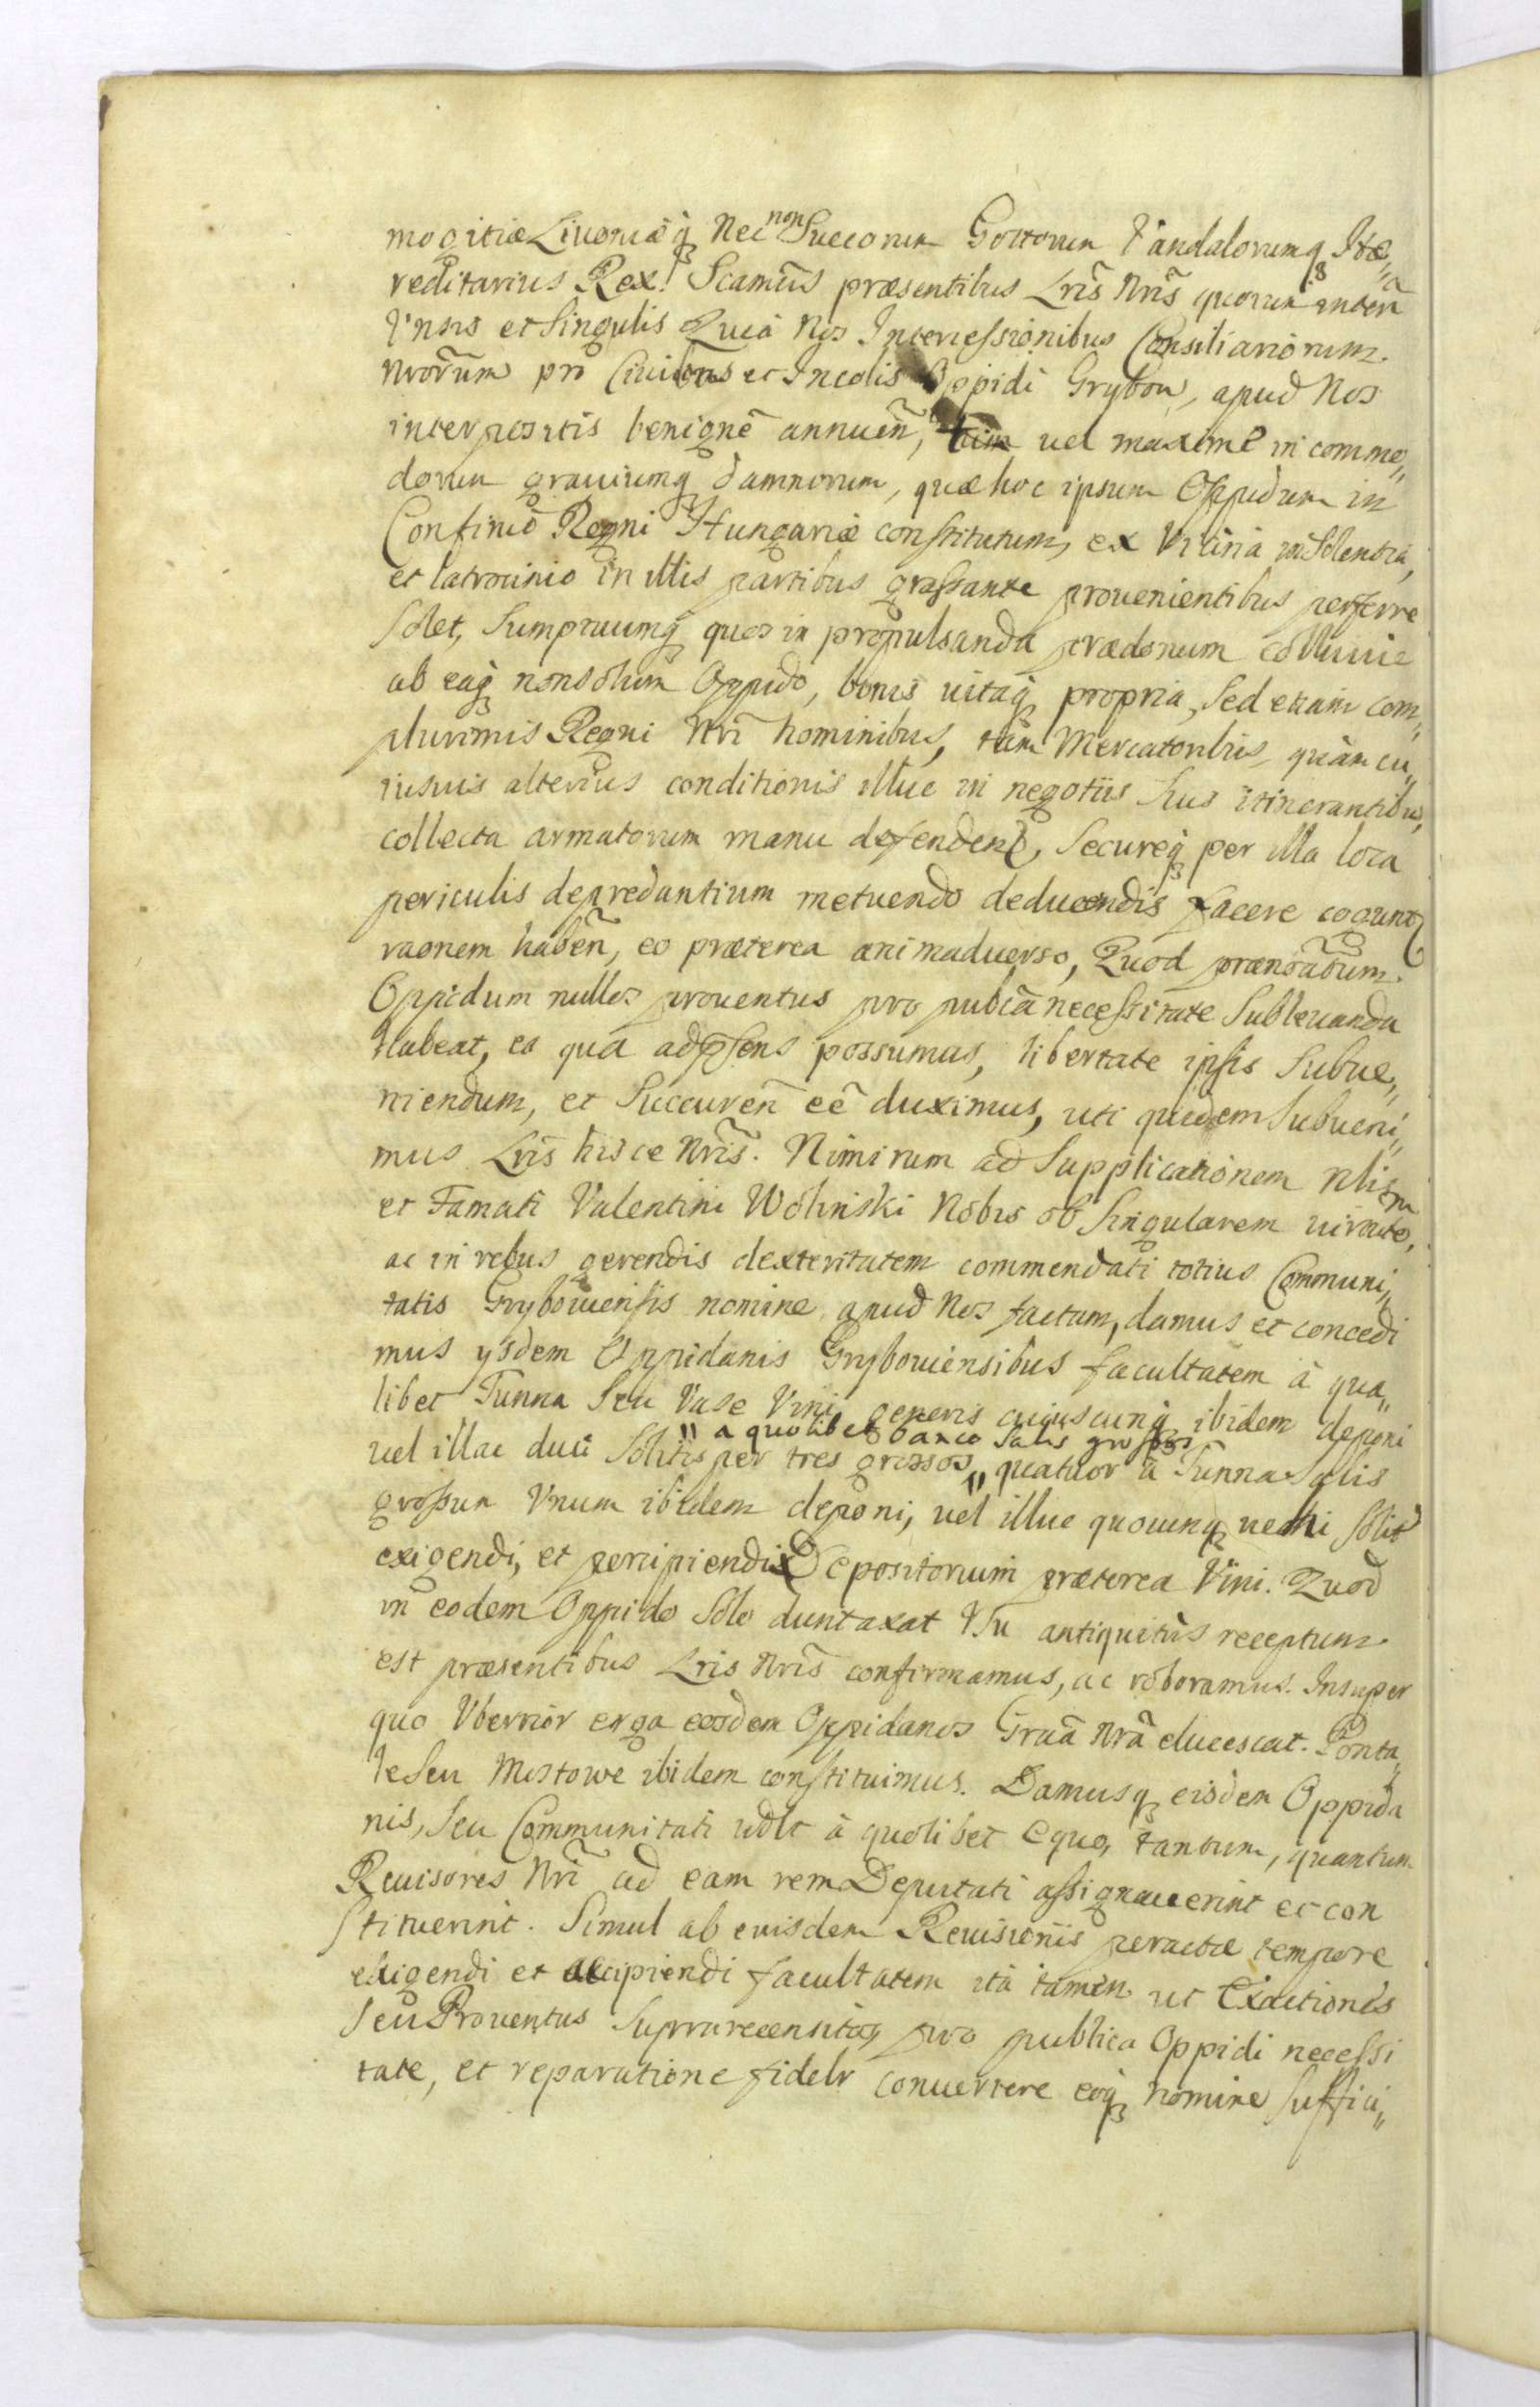 mogitiæ Livoniæq Nec non Suecorum Gottorum Vandalorumq Hæ„
reditarius Rex. Scamus præsentibus Lris Nris quorum interẽ
Vnsis et Singulis Quia Nos Intercessionibus Consiliariorum
Nrorum pro Civibus et Incolis Oppidi Grybow, apud Nos
interpositis benignè annueñ, tum vel maximè incommo„
dorum graviumq damnorum, quæ hoc ipsum Oppidum in
Confinio Regni Hungariæ constitutum, ex Vicina insolentia,
et latrocinio in illis partibus grassante provenientibus perferre
solet, Sumptuumq quos in propulsanda prædonum colluvie
ab eaq non solum Oppido, bonis vitaq propria, Sed etiam com„
plurimis Regni Nri hominibus, tàm Mercatoribus, quàm cu„
iusvis alterius conditionis illuc in negotiis suis itinerantibus,
collecta armatorum manu defendend, Secureq per illa loca
periculis depredantium metuendo deducendis facere cogunt
raonem habeñ, eo præterea animadverso, Quod prænotatum
Oppidum nullos proventus pro publca necessitate Sublevanda
Habeat, ea qua ad psens possumus, libertate ipsis Subve„
niendum, et Succureñ eẽ duximus, uti quidem Subveni„
mus Lris hisce Nris. Nimirum ad Supplicationem Nlis
et Famati Valentini Wolinski Nobis ob Singularem virtutem,
ac in rebus gerendis dexteritatem commendati totius Communi„
tatis Gryboviensis nomine apud Nos factam, damus et concedi
mus ysdem Oppidanis Gryboviensibus facultatem à qua„
libet Tunna Seu Vase Vini generis cuiuscunq ibidem deponi
„ a quolibet banco Salis grossos
vel illac duci Solitis per tres grossos „ quatuor à Tunna Salis
grossum Vnum ibidem deponi, vel illuc quocunq vehi solit
exigendi, et percipiendi Depositorium præterea Vini. Quod
in eodem Oppido Solo duntaxat Vsu antiquitùs receptum
est præsentibus Lris Nris confirmamus, ac roboramus. Insuper
quo Vberrior erga eosdem Oppidanos Graa Nra elucescat. Ponta„
le Seu Mostowe ibidem constituimus. Damusq eisdem Oppida
nis, Seu Communitati vdlt à quolibet Equo, tantum, quantum
Revisores Nri ad eam rem Deputati assignaverint et con
stituerint. Simul ab euisdem Revisionis peractæ tempore
exigendi et accipiendi facultatem ità tamen ut Exactiones
Seu Proventus Suprarecensitos, pro publica Oppidi necessi
tate, et reparatione fidelr convertere eoq nomine suffici„